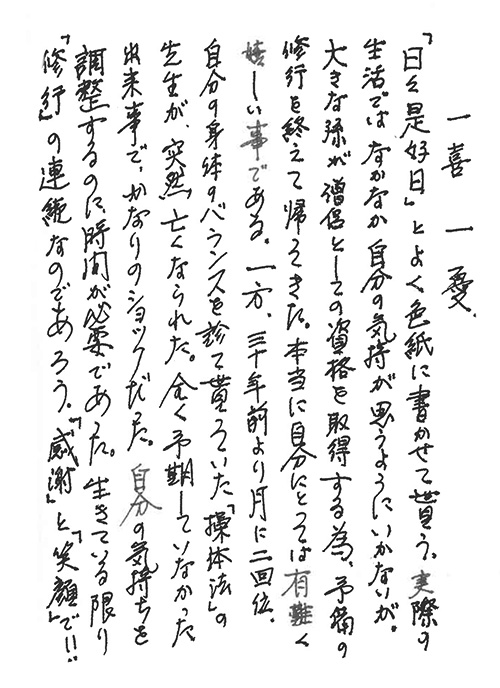 一喜一憂
「日々是好日」とよく色紙に書かせて貰う。実際の
生活ではなかなか自分の気持が思うようにいかないが。
大きな孫が僧侶としての資格を取得する為、予備の
修行を終えて帰ってきた。本当に自分にとっては有難く
嬉しい事である。一方、三十年前より月に二回位、
自分の身体のバランスを診て貰っていた「操体法」の
先生が、突然亡くなられた。全く予期していなかった
出来事で、かなりのショックだった。自分の気持ちを
調整するのに、時間が必要であった。生きている限り
「修行」の連続なのであろう。「感謝」と「笑顔」で!!